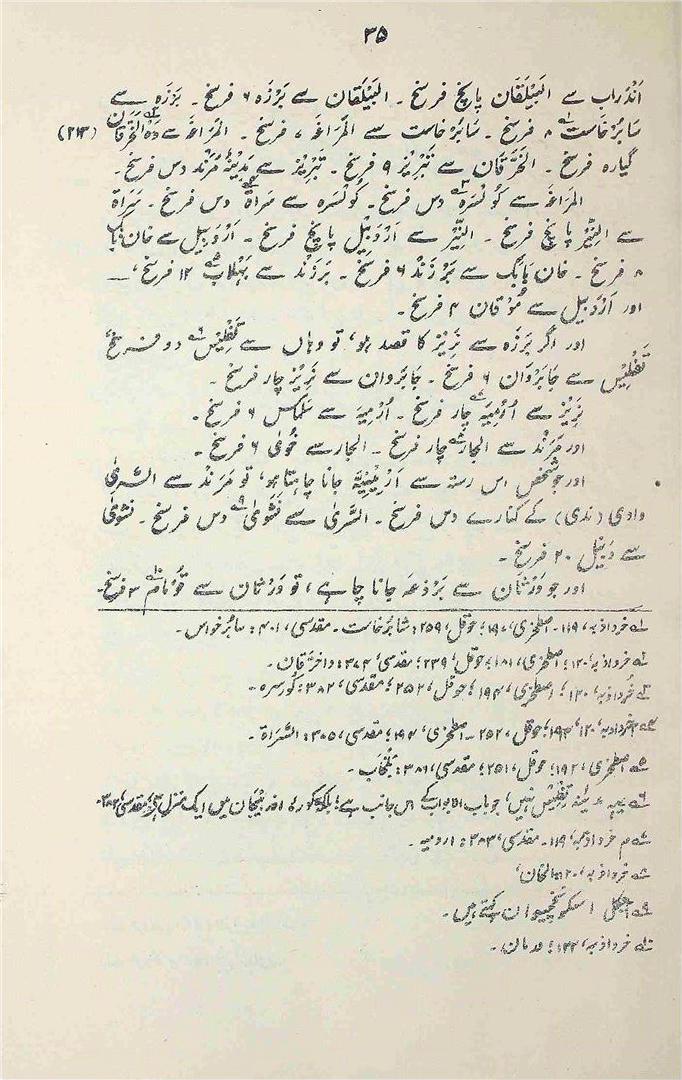 ۳۵
اَنْدَراب سے البَیْلَقَان پانچ فرسخ ۔ البَیْلَقَان سے بَرْزَہ ۶ فرسخ ۔ بَرْزَہ سے
سَابُرخَاست ۸ فرسخ ۔ سَابُرخاست سے المَرَاغَہ ۷ فرسخ ۔ المَرَاغَہ سے دَہْ الخَرَّقَان (۲۱۳)
گیارہ فرسخ ۔ الخَرَّقَان سے تَبْرِیْز ۹ فرسخ ۔ تَبْرِیْز سے مَدِیْنَۂ مَرَنْد دس فرسخ ۔
المَرَاغَہ سے کُوْلسَرَہ دس فرسخ ۔ کُوْلسَرہ سے سَرَاۃ دس فرسخ ۔ سَرَاۃ
سے النِیْر پانچ فرسخ ۔ النِیْر سے اَرْدَبِیْل پانچ فرسخ ۔ اَرْدَبِیْل سے خَان بَابَک
۸ فرسخ ۔ خَان بَابَک سے بَرْزَنْد ۶ فرسخ ۔ بَرْزَنْد سے بَہْلَاب ۱۲ فرسخ ،
اور اَرْدَبیل سے مُوْقَان ۴ فرسخ ۔
اور اگر بَرْزَہ سے نَرِیْز کا قصد ہو، تو وہاں سے تَفْلِیْس دو فرسخ،
تَفْلِیْس سے جَابَرْوَان ۶ فرسخ ۔ جَابَروان سے نَرِیْز چار فرسخ ۔
نَرِیْز سے اُرْمِیَہ چار فرسخ ۔ اُرْمِیَہ سے سَلَمَاس ۶ فرسخ ۔
اور مَرَنْد سے الجار چار فرسخ ۔ الجار سے خُوَی ۶ فرسخ ۔
اور جو شخص اس رستہ سے اَرْمِیْنِیَّہ جانا چاہتا ہو، تو مَرَنْد سے السَّریٰ
وادی (ندی) کے کنارے دس فرسخ ۔ السَّریٰ سے نَشَویٰ دس فرسخ ۔ نشویٰ
سے دَبِیْل ۲۰ فرسخ ۔
اور جو وَرْثَان سے بَرْذَعَہ جانا چاہے، تو وَرْثَان سے قُوْمَام ۳ فرسخ ۔
۱ خرداذبہ، ۱۱۹ ۔ اصطخری، ۱۹۰؛ حوقل، ۲۵۹: شابُرخاست ۔ مقدسی، ۴۰۱: سابرخواس ۔
۲ خرداذبہ، ۱۲۰؛ اصطخری، ۱۸۱؛ حوقل، ۲۳۹؛ مقدسی، ۳۷۴: داخَرَّقان ۔
۳ خرداذبہ، ۱۲۰؛ اصطخری، ۱۹۴؛ حوقل، ۲۵۲؛ مقدسی، ۳۸۲: کُورسرہ ۔
۴ خرداذبہ، ۱۲۰، حوقل، ۲۵۲ ۔ اصطخری، ۱۹۴؛ مقدسی، ۳۰۵: السَّرَاۃ ۔
۵ اصطخری، ۱۹۲؛ حوقل، ۲۵۱؛ مقدسی، ۳۸۱: بَلْخَاب ۔
۶ یہ مدینۂ تَفْلِیْس نہیں، جو باب الابواب کے اس جانب ہے؛ بلکہ کورۂ اذربیجان میں ایک منزل ہے؛ مقدسی، ۳۸۳ ۔
۷ خرداذبہ، ۱۱۹ ۔ مقدسی، ۳۸۳: ارومیہ ۔
۸ خرداذبہ، ۱۲۰: الخان،
۹ آجکل اسکو نخچیوان کہتے ہیں ۔
۱۰ خرداذبہ، ۱۲۲: